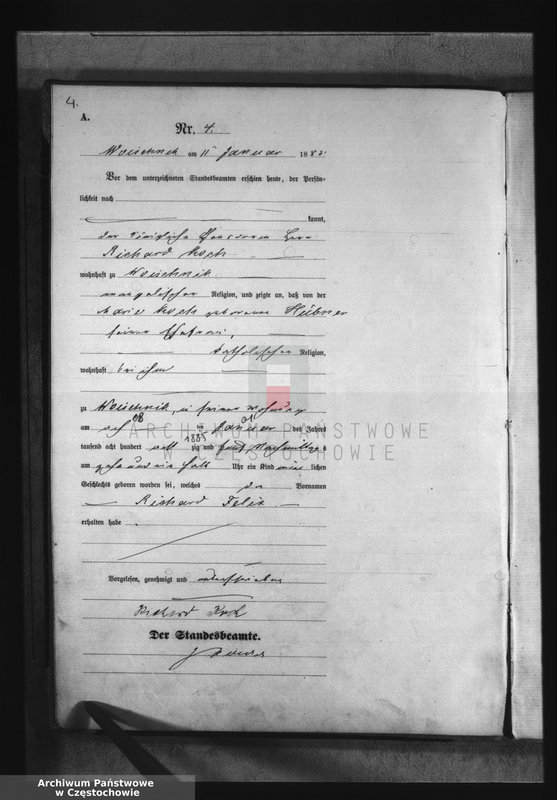 4.
A.
Nr. 4.
Woischnik am 11 Januar 1885
Vor dem unterzeichneten Standesbeamten erschien heute, der Persön-
lichkeit nach
kannt,
der Herr
Richard Koch
wohnhaft zu Woischnik
evangelischer Religion, und zeigte an, daß von der
Marie Koch geborene Hübner
seiner Ehefrau,
katholischer Religion,
wohnhaft bei ihm
zu Woischnik, in seiner Wohnung
am 08 im 01 Januar des Jahres
1885
tausend acht hundert acht zig und fünf Nachmittags
um und ein halb Uhr ein Kind männ lichen
Geschlechts geboren worden sei, welches die Vornamen
Richard Felix
erhalten habe.
Vorgelesen, genehmigt und unterschrieben
Richard Koch
Der Standesbeamte.
ARCHIWUM PAŃSTWOWE
W CZĘSTOCHOWIE
Archiwum Państwowe
w Częstochowie